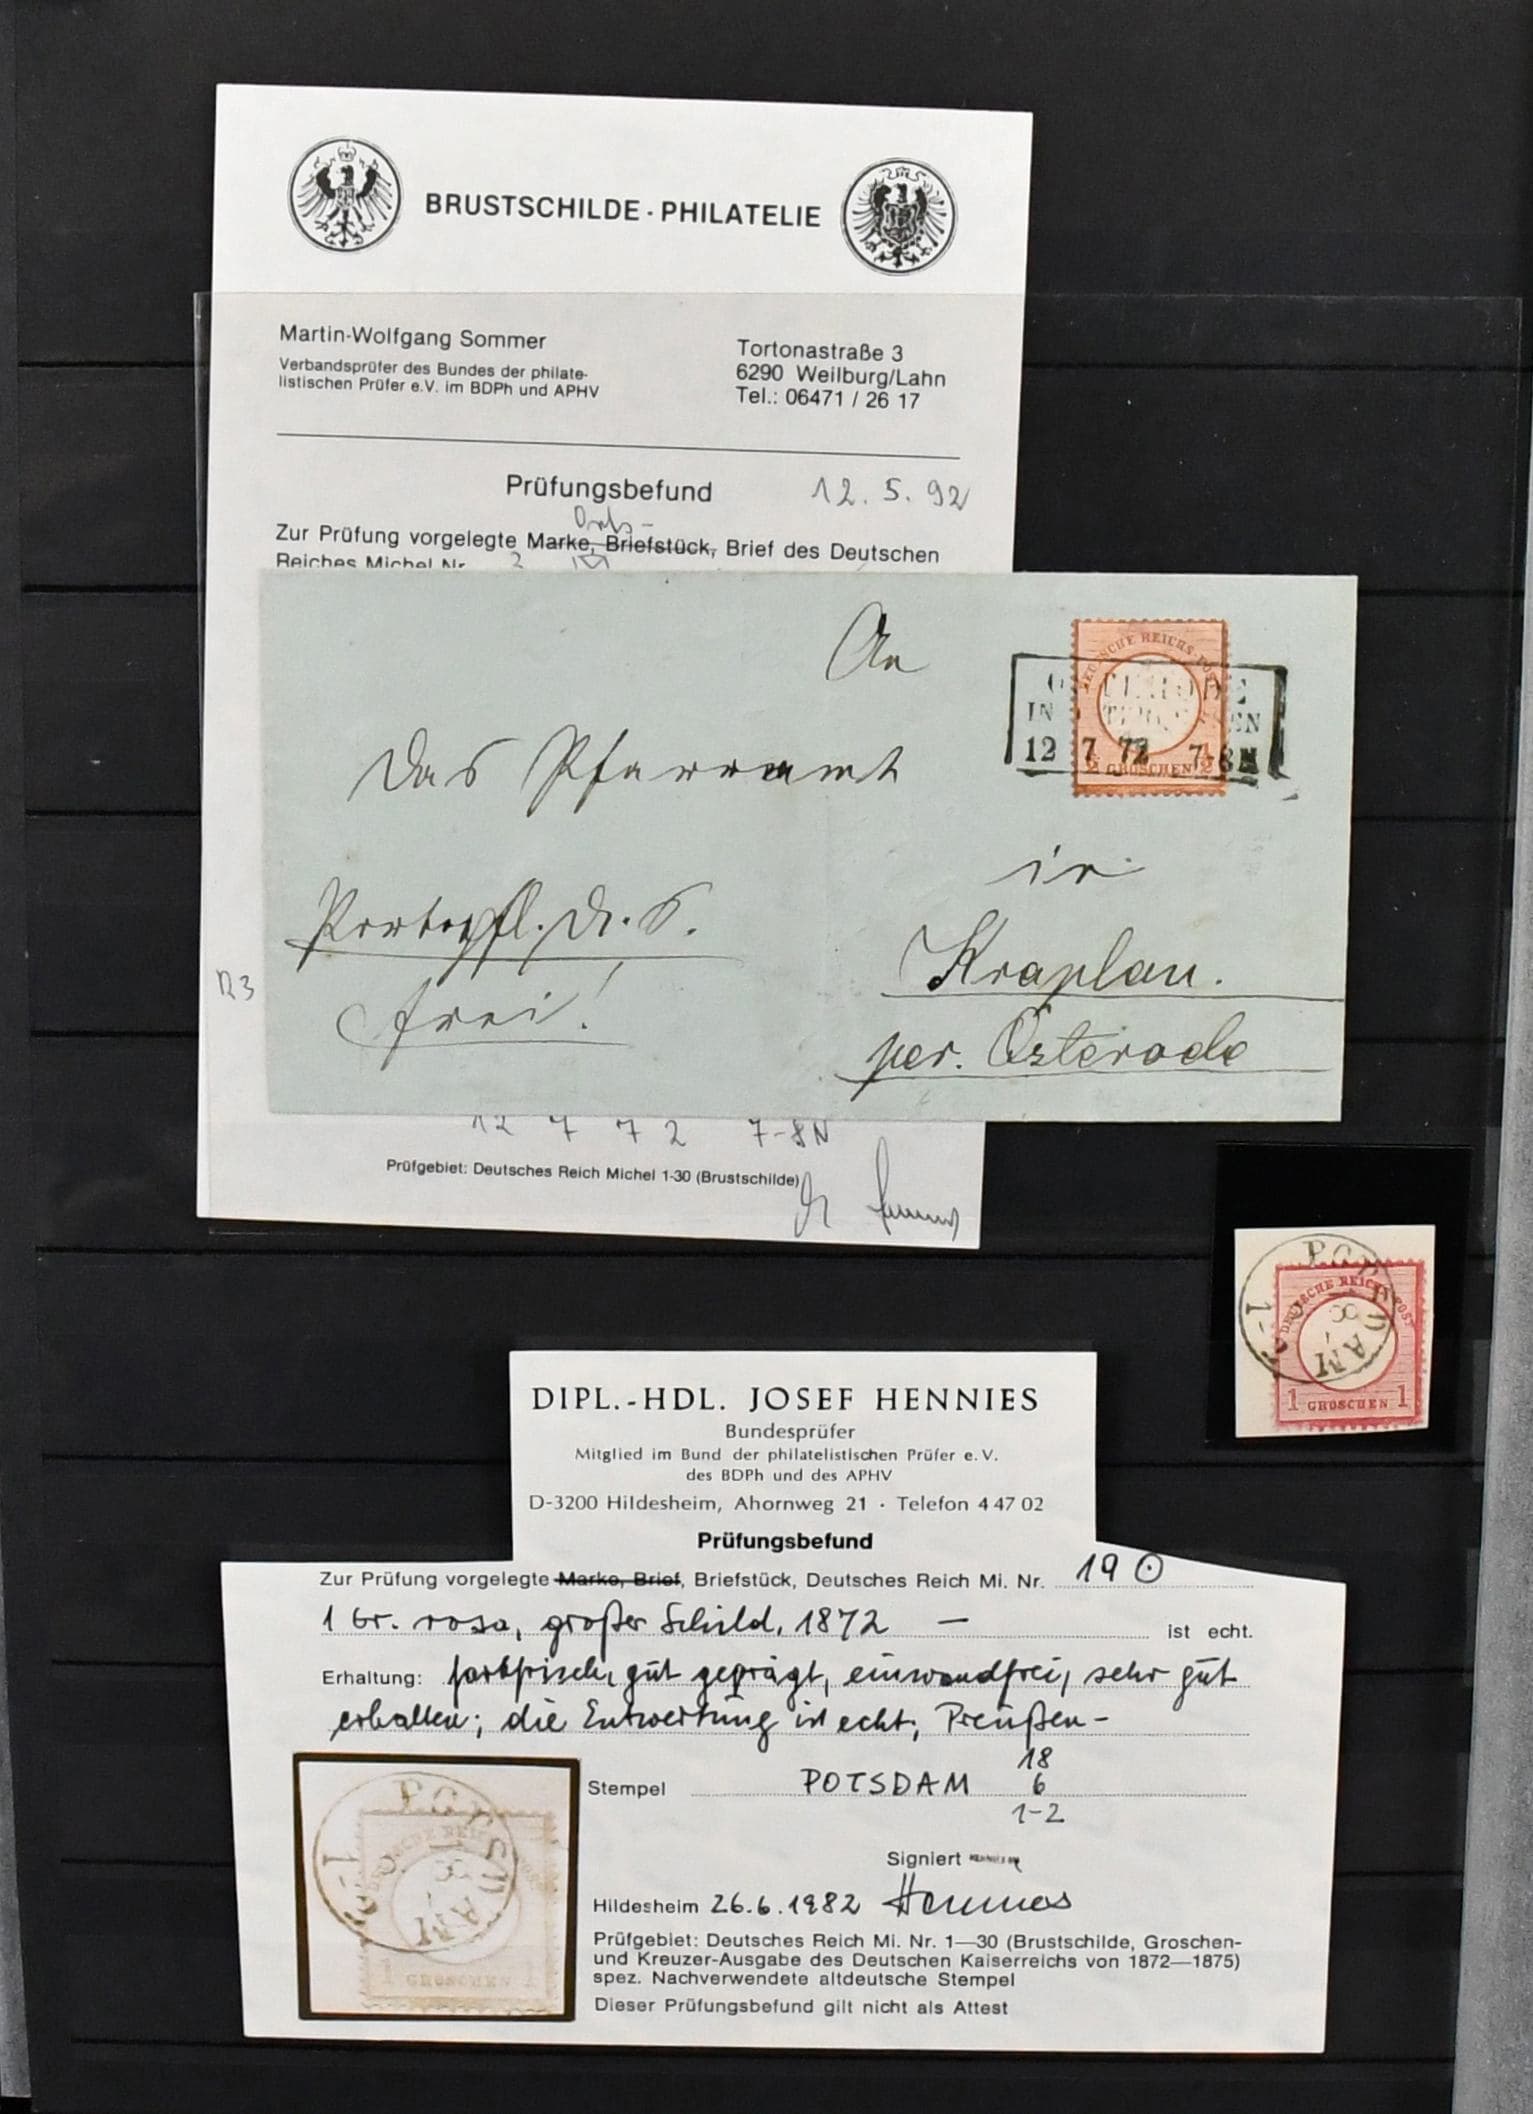 BRUSTSCHILDE - PHILATELIE
Martin-Wolfgang Sommer
Verbandsprüfer des Bundes der philate-
listischen Prüfer e.V. im BDPh und APHV
Tortonastraße 3
6290 Weilburg/Lahn
Tel.: 06471 / 26 17
Prüfungsbefund 12.5.92
Orts-
Zur Prüfung vorgelegte Marke, Briefstück, Brief des Deutschen
Reiches Michel Nr.
An
das Pfarramt
in
Kraplau.
per. Osterode
Portopfl. D. S.
frei!
DEUTSCHE REICHS-POST
IN
12 7 72 7-8N
½ GROSCHEN ½
12 7 72 7-8N
Prüfgebiet: Deutsches Reich Michel 1-30 (Brustschilde)
POTSDAM
DEUTSCHE REICHS-POST
1 GROSCHEN 1
DIPL.-HDL. JOSEF HENNIES
Bundesprüfer
Mitglied im Bund der philatelistischen Prüfer e. V.
des BDPh und des APHV
D-3200 Hildesheim, Ahornweg 21 · Telefon 4 47 02
Prüfungsbefund
Zur Prüfung vorgelegte Marke, Brief, Briefstück, Deutsches Reich Mi. Nr. 19 ⊙
1 Gr. rosa, großer Schild, 1872 — ist echt.
Erhaltung: farbfrisch, gut geprägt, einwandfrei, sehr gut
erhalten; die Entwertung ist echt, Preußen-
Stempel POTSDAM 18
6
1-2
Signiert
Hildesheim 26.6.1982 Hennies
Prüfgebiet: Deutsches Reich Mi. Nr. 1—30 (Brustschilde, Groschen-
und Kreuzer-Ausgabe des Deutschen Kaiserreichs von 1872—1875)
spez. Nachverwendete altdeutsche Stempel
Dieser Prüfungsbefund gilt nicht als Attest
POTSDAM
1 GROSCHEN 1